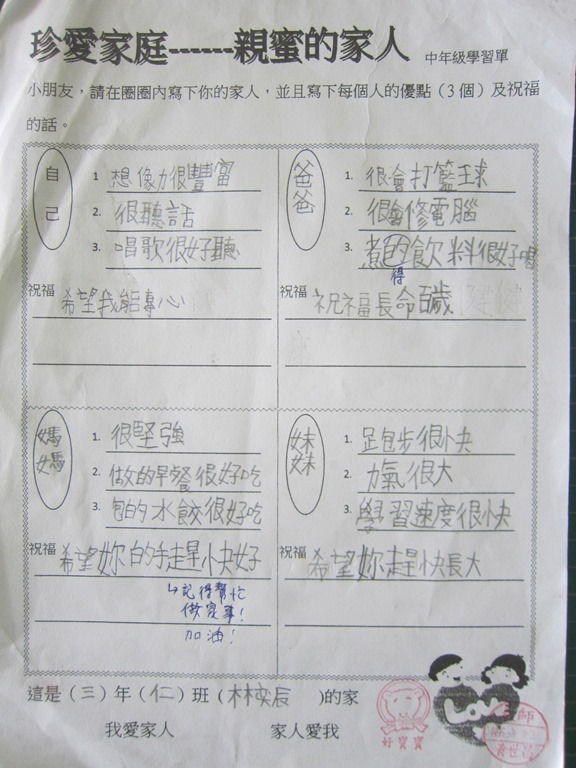 珍愛家庭------親蜜的家人 中年級學習單
小朋友，請在圈圈內寫下你的家人，並且寫下每個人的優點（3 個）及祝福
的話。
自己
1 想像力很豐富
2. 很聽話
3. 唱歌很好聽
祝福 希望我能專心
爸爸
1. 很會打籃球
2. 很會修電腦
3. 煮的飲料很好喝
得
祝福 祝福長命百歲
媽媽
1. 很堅強
2. 做的早餐很好吃
3. 包的水餃很好吃
祝福 希望妳的手趕快好
↳記得幫忙
做家事!
加油!
妹妹
1. 跑步很快
2. 力氣很大
3. 學習速度很快
祝福 希望妳趕快長大
這是（三）年（仁）班（林奕辰 )的家
我愛家人 家人愛我
好寶寶
LOVE